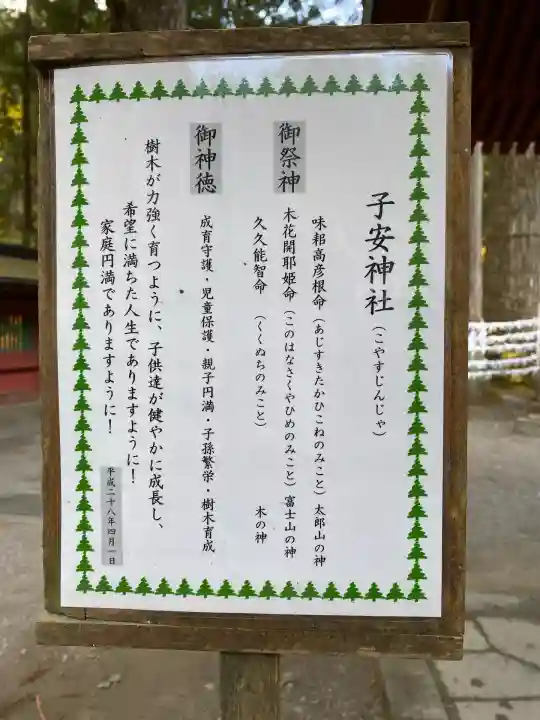 子安神社(こやすじんじゃ)
御祭神
味耜高彦根命(あじすきたかひこねのみこと)太郎山の神
木花開耶姫命(このはなさくやひめのみこと)富士山の神
久久能智命(くくぬちのみこと)木の神
御神徳
成育守護・児童保護・親子円満・子孫繁栄・樹木育成
樹木が力強く育つように、子供達が健やかに成長し、
希望に満ちた人生でありますように!
家庭円満でありますように!
平成二十八年四月一日